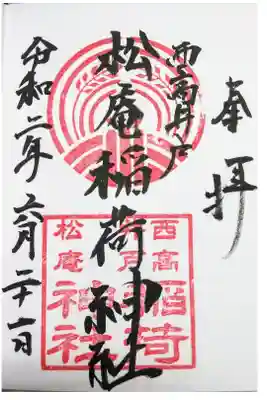 奉拝
西高井戸
松庵稲荷神社
令和二年六月二十一日
西高
井戸
稲荷
松庵
神社